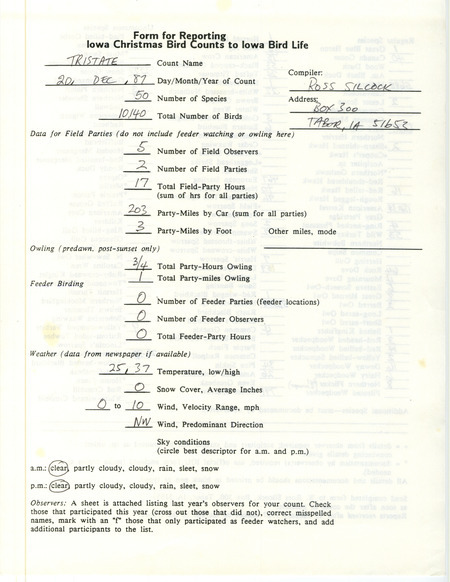 Form for Reporting
Iowa Christmas Bird Counts to Iowa Bird Life
TRISTATE Count Name
20, DEC, 87 Day/Month/Year of Count
Compiler:
ROSS SILCOCK
50 Number of Species
Address:
BOX 300
10140 Total Number of Birds
TABOR, IA 51653
Data for Field Parties (do not include feeder watching or owling here)
5 Number of Field Observers
2 Number of Field Parties
17 Total Field-Party Hours
(sum of hrs for all parties)
203 Party-Miles by Car (sum for all parties)
3 Party-Miles by Foot Other miles, mode
Owling (predawn, post-sunset only)
3/4 Total Party-Hours Owling
1 Total Party-miles Owling
Feeder Birding
0 Number of Feeder Parties (feeder locations)
0 Number of Feeder Observers
0 Total Feeder-Party Hours
Weather (data from newspaper if available)
25, 37 Temperature, low/high
0 Snow Cover, Average Inches
0 to 10 Wind, Velocity Range, mph
NW Wind, Predominant Direction
Sky conditions
(circle best descriptor for a.m. and p.m.)
a.m.: clear, partly cloudy, cloudy, rain, sleet, snow
p.m.: clear, partly cloudy, cloudy, rain, sleet, snow
Observers: A sheet is attached listing last year's observers for your count. Check
those that participated this year (cross out those that did not), correct misspelled
names, mark with an "f" those that only participated as feeder watchers, and add
additional participants to the list.